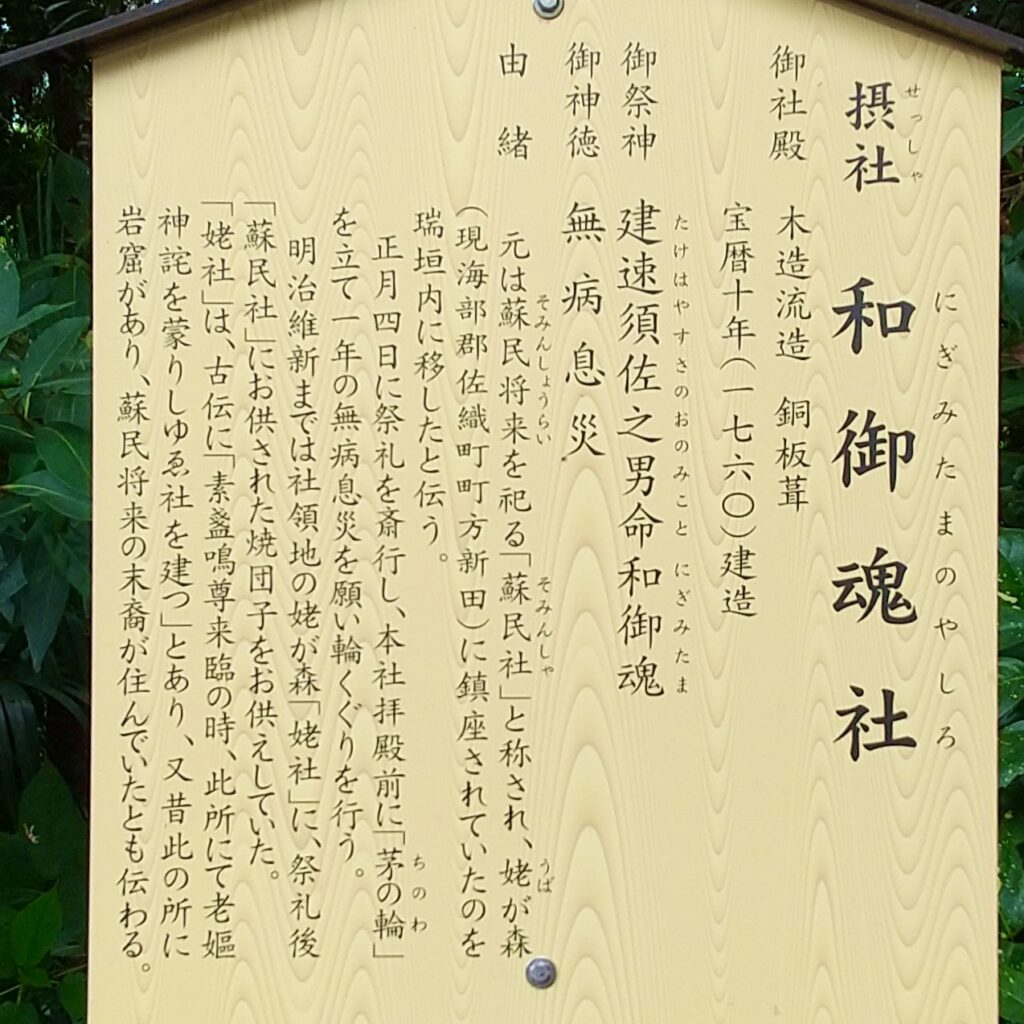 摂社　和御魂社
せっしゃ　にぎみたまのやしろ
御社殿　木造流造　銅板葺
宝暦十年(一七六〇)建造
御祭神　建速須佐之男命和御魂
たけはやすさのおのみこと　にぎみたま
御神徳　無病息災
由緒　元は蘇民将来を祀る「蘇民社」と称され、姥が森
そみんしょうらい　そみんしゃ　うば
(現海部郡佐織町町方新田)に鎮座されていたのを
瑞垣内に移したと伝う。
正月四日に祭礼を斎行し、本社拝殿前に「茅の輪」
ちのわ
を立て一年の無病息災を願い輪くぐりを行う。
明治維新までは社領地の姥が森「姥社」に、祭礼後
「蘇民社」にお供された焼団子をお供えしていた。
「姥社」は、古伝に「素盞鳴尊来臨の時、此所にて老嫗
神詫を蒙りしゆゑ社を建つ」とあり、又昔此の所に
岩窟があり、蘇民将来の末裔が住んでいたとも伝わる。